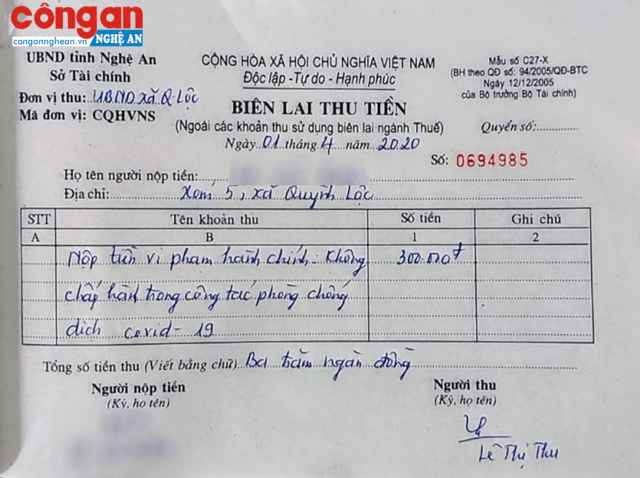 côngan
NGHỆ AN
congannghean.vn
UBND tỉnh Nghệ An
Sở Tài chính
Đơn vị thu: UBND xã Q Lộc
Mã đơn vị: CQHVNS
CỘNG HÒA XÃ HỘI CHỦ NGHĨA VIỆT NAM
Độc lập -Tự do - Hạnh phúc
BIÊN LAI THU TIỀN
(Ngoài các khoản thu sử dụng biên lai ngành Thuế)
Ngày 01 tháng 4 năm 2020
Mẫu số C27-X
(BH theo QĐ số: 94/2005/QĐ-BTC
Ngày 12/12/2005
của Bộ trưởng Bộ Tài chính)
Quyển số:
Số: 0694985
Họ tên người nộp tiền:
Địa chỉ: Xóm 5, xã Quỳnh Lộc
STT Tên khoản thu Số tiền Ghi chú
A B 1 2
Nộp tiền vi phạm hành chính: Không 300.000đ
chấp hành trong công tác phòng chống
dịch covid-19
Tổng số tiền thu (Viết bằng chữ) Ba trăm ngàn đồng
Người nộp tiền Người thu
(Ký, họ tên) (Ký, họ tên)
Lê Thị Thu